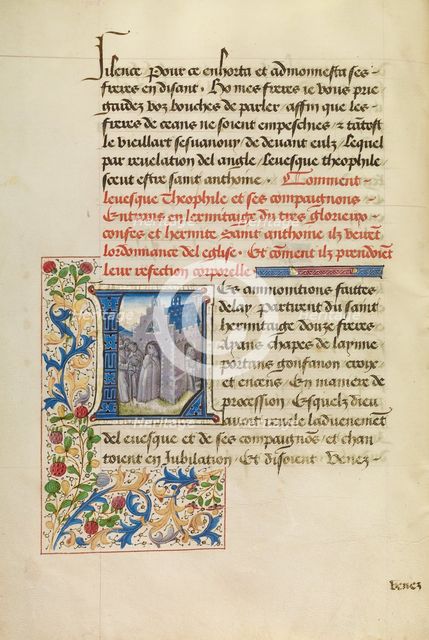 Silence Pour ce enhorta et admonnesta ses
freres en disant · Ho mes freres ie vous prie
gardez voz bouches de parler / affin que les
freres de ceans ne soient empeschies · et tatost
le vieillart sesuanouy de deuant eulz / Lequel
par reuelation del angle / leuesque theophile
sceut estre saint anthoine · Comment
leuesque Theophile et ses compagnons ·
Entrans en lermitaige du tres glorieux
confes et hermite Saint anthoine ilz veirent
lordonnance del eglise · Et cōment ilz prendoient
leur refection corporelle
Les ammonitions faittes
delay partirent du saint
hermitaige douze freres
Ayans chapes de layne
portans gonfanon croix
et encens / En maniere de
procession / Esquelz dieu
auoit reuele laduenement
del euesque et de ses compagnōs et chan
toient en Jubilation / Et disoient Venez
Venez
heritage